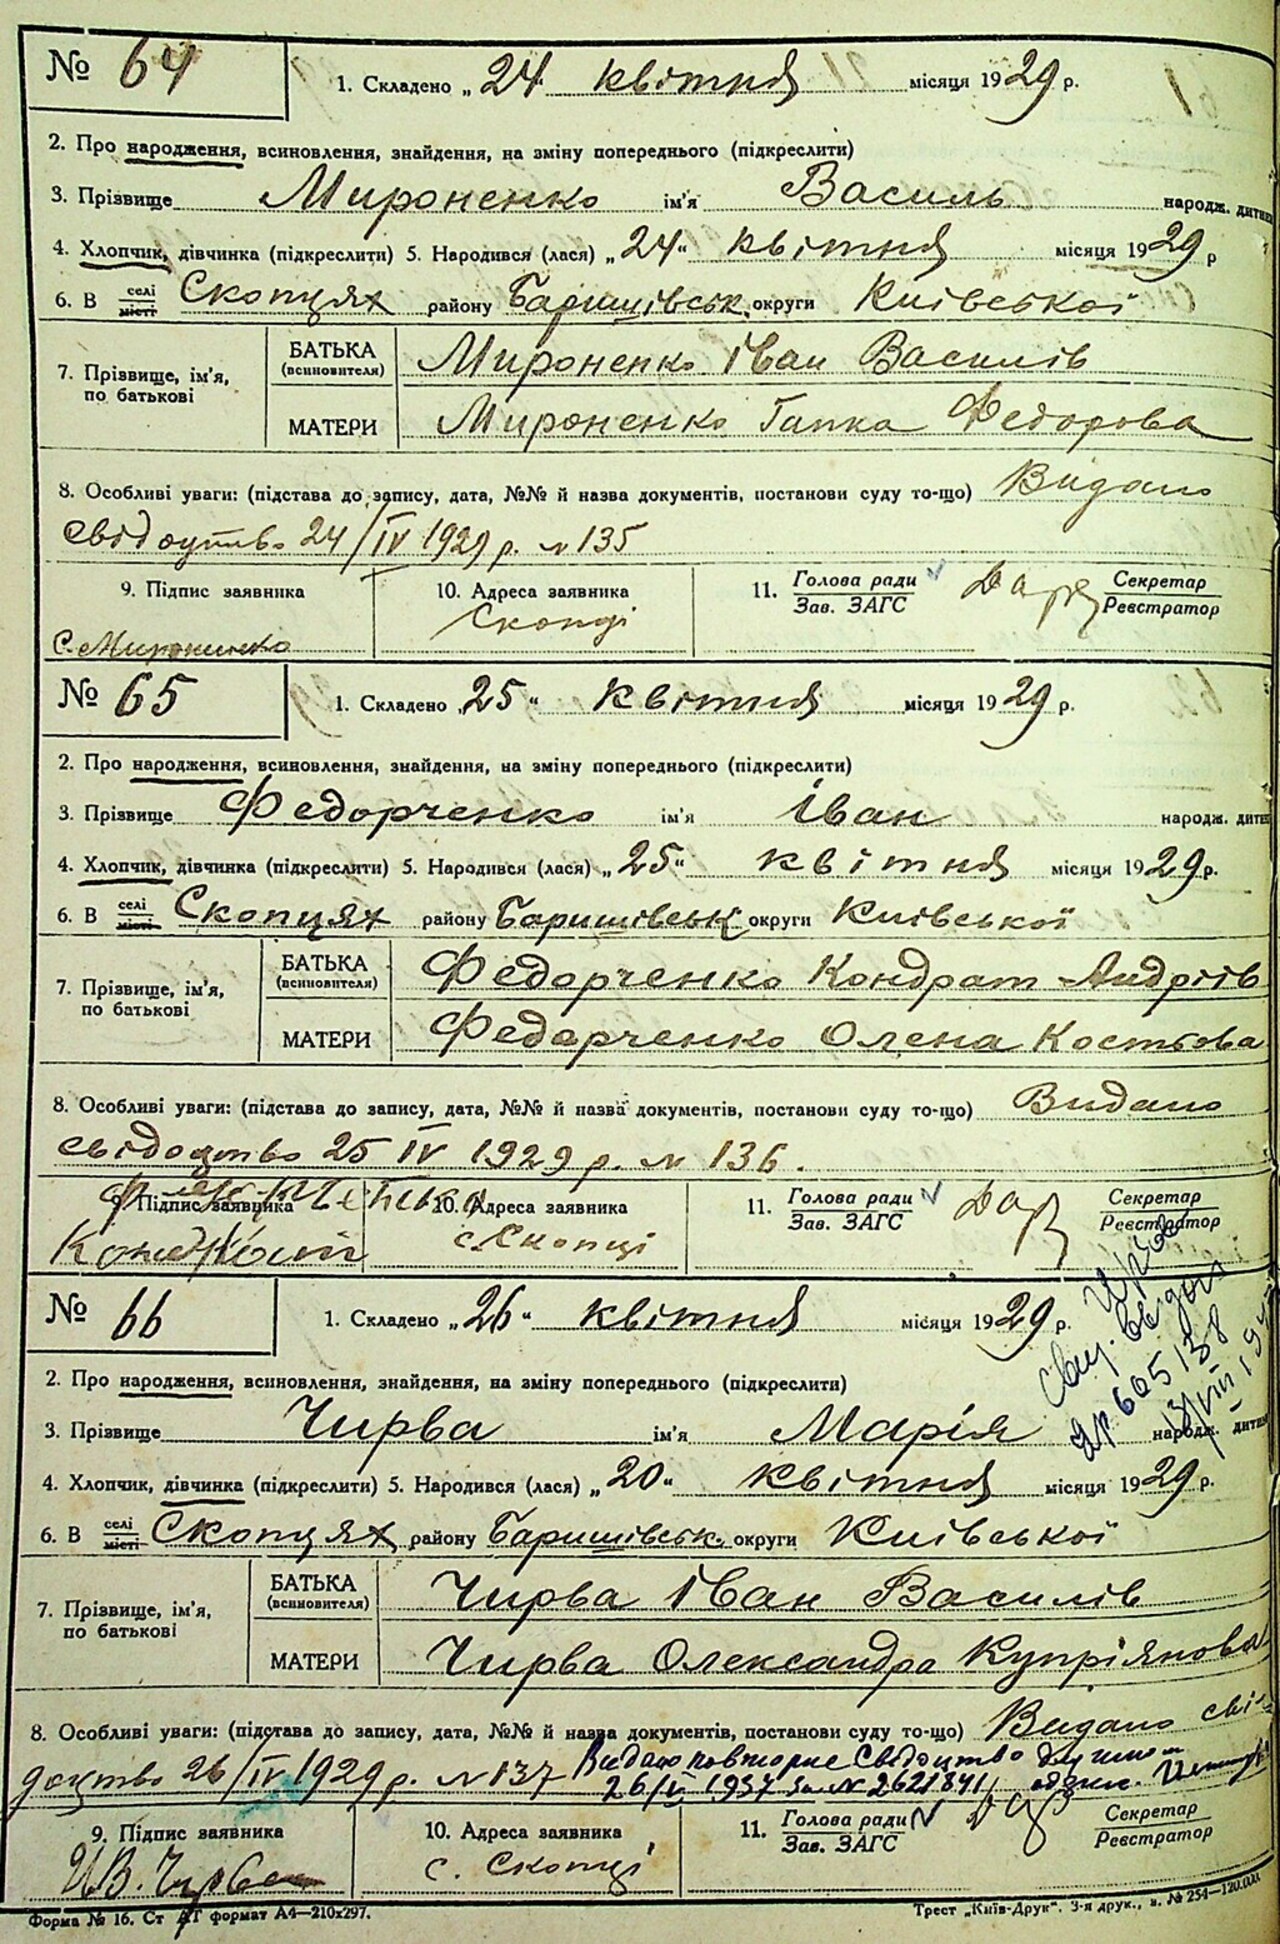 № 64 1. Складено „24“ квітня місяця 1929 р.
2. Про народження, всиновлення, знайдення, на зміну попереднього (підкреслити)
3. Прізвище Мироненко ім'я Василь народж. дитини
4. Хлопчик, дівчинка (підкреслити) 5. Народився (лася) „24“ квітня місяця 1929 р
6. В селі місті Скопцях району Баришівськ. округи Київської
7. Прізвище, ім'я, по батькові
БАТЬКА (всиновителя) Мироненко Іван Василів
МАТЕРИ Мироненко Гапка Федорова
8. Особливі уваги: (підстава до запису, дата, №№ й назва документів, постанови суду то-що) Видано
свідоцтво 24/IV 1929 р. № 135
9. Підпис заявника 10. Адреса заявника 11. Голова ради Секретар
Зав. ЗАГС Реєстратор
С. Мироненко Скопці
№ 65 1. Складено „25“ квітня місяця 1929 р.
2. Про народження, всиновлення, знайдення, на зміну попереднього (підкреслити)
3. Прізвище Федорченко ім'я Іван народж. дитин
4. Хлопчик, дівчинка (підкреслити) 5. Народився (лася) „25“ квітня місяця 1929 р.
6. В селі місті Скопцях району Баришівськ округи Київської
7. Прізвище, ім'я, по батькові
БАТЬКА (всиновителя) Федорченко Кондрат Андріїв
МАТЕРИ Федорченко Олена Костьова
8. Особливі уваги: (підстава до запису, дата, №№ й назва документів, постанови суду то-що) Видано
свідоцтво 25 IV 1929 р. № 136.
9. Підпис заявника 10. Адреса заявника 11. Голова ради Секретар
Зав. ЗАГС Реєстратор
с. Скопці
№ 66 1. Складено „26“ квітня місяця 1929 р.
2. Про народження, всиновлення, знайдення, на зміну попереднього (підкреслити)
3. Прізвище Чирва ім'я Марія народж. дитин
4. Хлопчик, дівчинка (підкреслити) 5. Народився (лася) „20“ квітня місяця 1929 р.
6. В селі місті Скопцях району Баришівськ. округи Київської
7. Прізвище, ім'я, по батькові
БАТЬКА (всиновителя) Чирва Іван Василів
МАТЕРИ Чирва Олександра Купріянова
8. Особливі уваги: (підстава до запису, дата, №№ й назва документів, постанови суду то-що) Видано сві-
доцтво 26/IV 1929 р. № 137 Видано повторне Свідоцтво
1937 за № 2621841
9. Підпис заявника 10. Адреса заявника 11. Голова ради Секретар
Зав. ЗАГС Реєстратор
с. Скопці
Форма № 16. Ст АТ формат А4—210х297. Трест „Київ-Друк“. 3-я друк., з. № 254—120.000